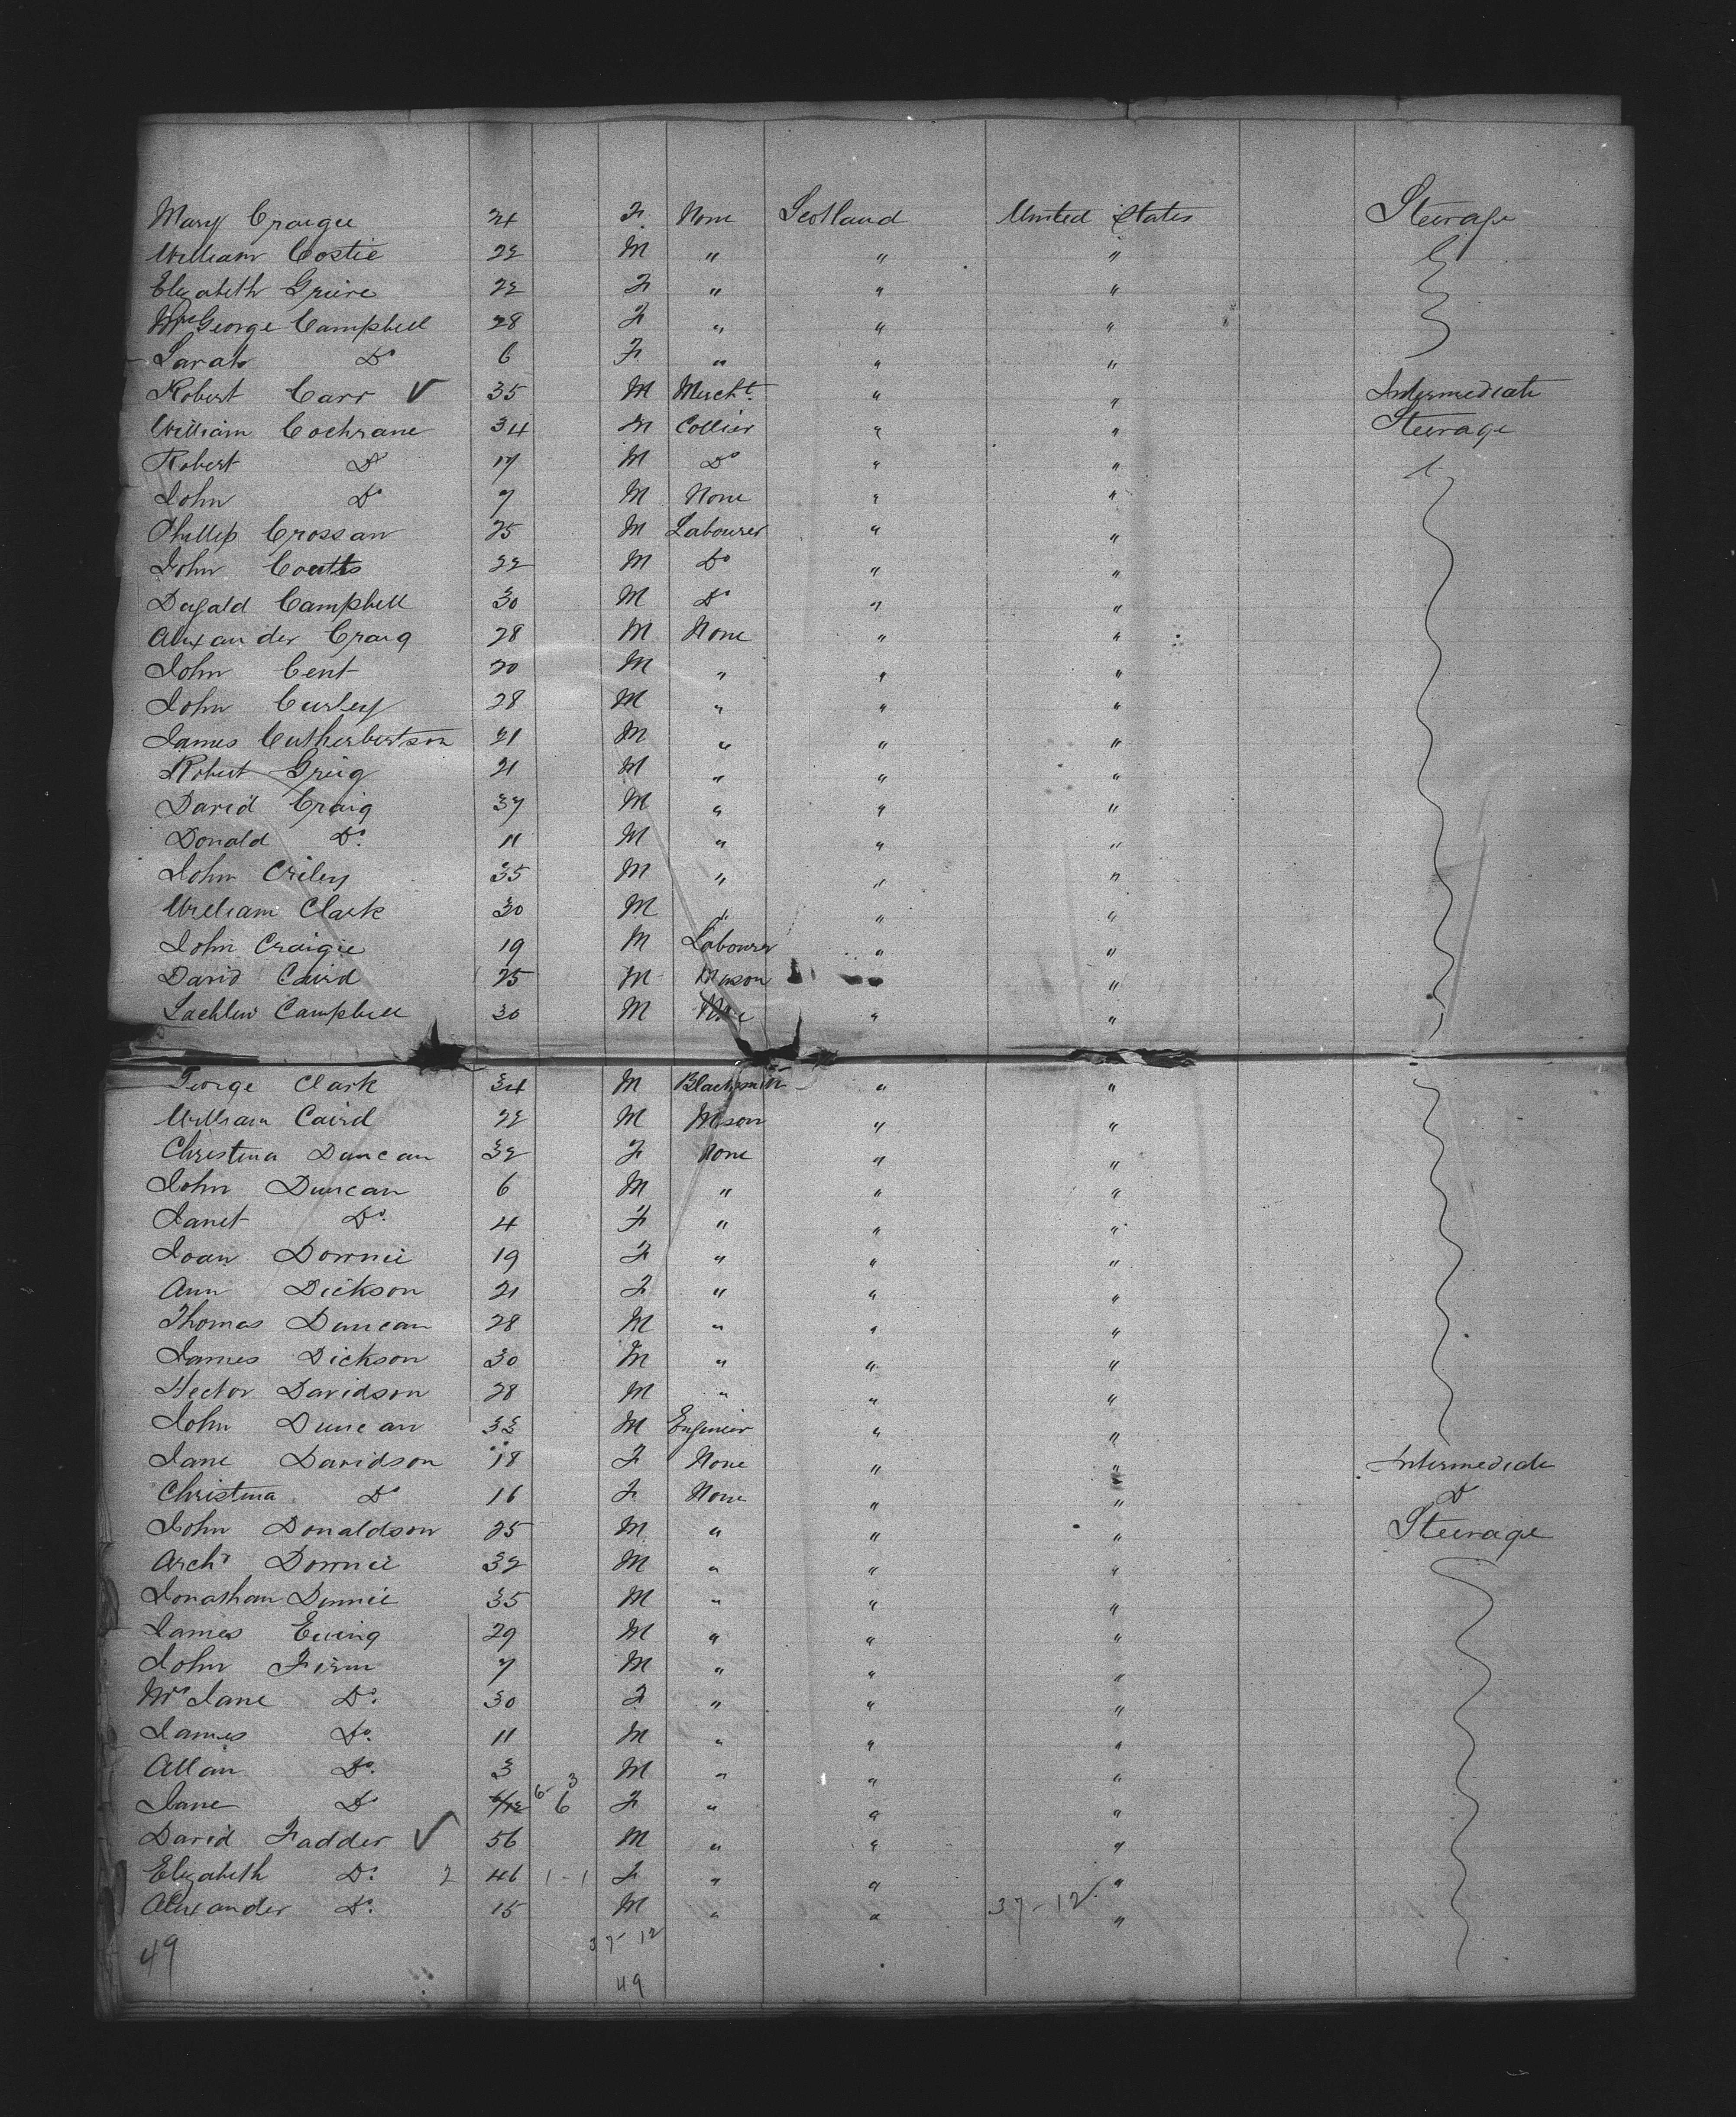 Mary Craigie 24 F. None Scotland United States Steerage
William Costie 22 M " " "
Elizabeth Grieve 22 F " " "
Mrs George Campbell 28 F " " "
Sarah Do 6 F " " "
Robert Carr V 35 M Mercht. " " Intermediate
William Cochrane 34 M Collier " " Steerage
Robert Do 17 M Do " "
John Do 7 M None " "
Phillip Crossan 25 M Labourer " "
John Coutts 22 M Do " "
Dugald Campbell 30 M Do " "
Alexander Craig 28 M None " "
John Cent 20 M " " "
John Curley 28 M " " "
James Cuthbertson 21 M " " "
Robert Greig 21 M " " "
David Craig 37 M " " "
Donald Do. 11 M " " "
John Criley 35 M " " "
William Clark 30 M " " "
John Craigie 19 M Labourer " "
David Caird 25 M Mason "
Lachlin Campbell 30 M " "
George Clark 34 M Blacksmith " "
William Caird 22 M Mason " "
Christina Duncan 32 F None " "
John Duncan 6 M " " "
Janet Do. 4 F " " "
Joan Downie 19 F " " "
Ann Dickson 21 F " " "
Thomas Duncan 28 M " " "
James Dickson 30 M " " "
Hector Davidson 28 M " " "
John Duncan 33 M Engineer " "
Jane Davidson 18 F None " " Intermediate
Christina Do 16 F None " " Do
John Donaldson 25 M " " " Steerage
Archd Downie 32 M " " "
Jonathan Dinnie 35 M " " "
James Ewing 29 M " " "
John Firm 7 M " " "
Mrs Jane Do. 30 F " " "
James Do. 11 M " " "
Allan Do. 3 M " " "
Jane Do 6/12 6 - 3 6 F " " "
David Fadder V 56 M " " "
Elizabeth Do. 2 46 1 - 1 F " " "
Alexander Do. 15 M " " 37 - 12 "
49 37 - 12
49